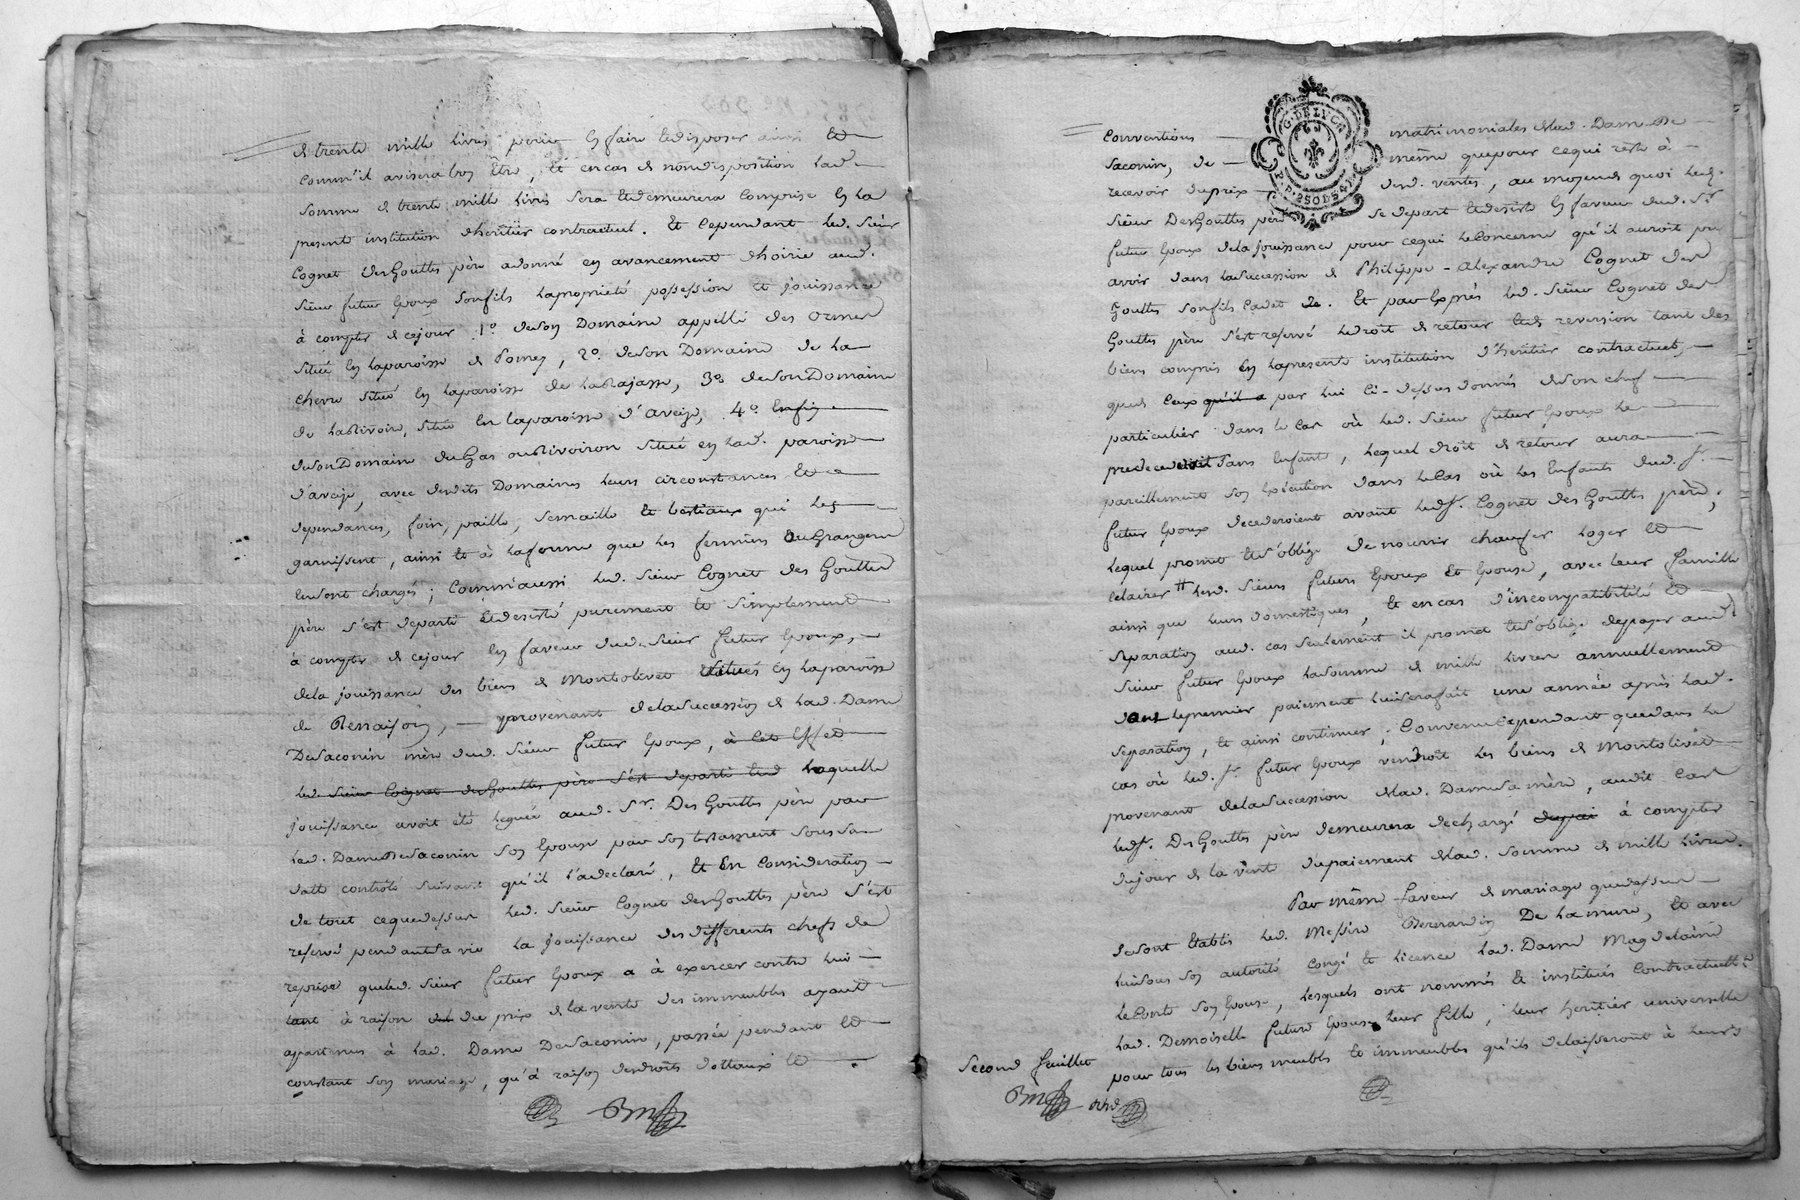 de trente mille livres pour en faire et disposer ainsi et
comm'il avisera bon Etre, Et en cas de non disposition lad.
somme de trente mille livres sera et demeurera comprise en la
presente institution d'heritier contractuel. Et Cependant led. Sieur
Cognet des Gouttes père a donné en avancement d'hoirie aud.
Sieur futur Epoux son fils la proprieté possession et jouissance
à compter de ce jour 1o. de son Domaine appellé des ormes
situé en la paroisse de Pomey, 2o. de son Domaine de la
chevre situé en la paroisse de la Rajasse, 3o. de son Domaine
de la Rivoire, situé en la paroisse d'aveize, 4o. Enfin
de son Domaine du Gas ou Rivoiron situé en lad. paroisse
d'aveize, avec desdits Domaines leurs circonstances Et
dependances, foin, paille, semaille et bestiaux qui les
garnissent, ainsi et à la forme que les fermiers ou Grangers
en sont chargés; Comm'aussi led. Sieur Cognet des Gouttes
père s'est departi et desisté purement et simplement
à compter de ce jour en faveur dud. Sieur futur Epoux,
de la jouissance des biens de Montolivet situés en la paroisse
de Renaison, provenant de la succession de lad. Dame
De Saconin mère dud. Sieur futur Epoux, à cet Effet
led. Sieur Cognet des Gouttes père s'est departi laquelle
jouissance avoit été leguée aud. Sr. Des Gouttes père par
lad. Dame De Saconin son Epouse par son testament sous sa
datte controlé suivant qu'il l'a declaré, Et En Consideration
de tout ce que dessus led. Sieur Cognet des Gouttes père s'est
reservé pendant sa vie la jouissance des differents chefs de
reprise que led. Sieur futur Epoux a à exercer contre lui
tant à raison du prix de la vente des immeubles ayant
appartenus à lad. Dame De Saconin, passée pendant et
constant son mariage, qu'à raison des droits dottaux et
G. DE LYON
conventions matrimoniales de lad. Dame De
Saconin, de même que pour ce qui reste à
recevoir du prix desd. ventes, au moyend quoi led.
Sieur Des Gouttes père se depart et desiste en faveur dud. Sr.
futur Epoux de la jouissance pour ce qui le concerne qu'il auroit pu
avoir dans la succession de Philippe-Alexandre Cognet des
Gouttes son fils cadet. Et par Exprès led. Sieur Cognet des
Gouttes père s'est reservé le droit de retour et de reversion tant des
biens compris en la presente institution d'heritier contractuel,
que de ceux qu'il a par lui ci-dessus donnés de son chef
particulier dans le cas où led. Sieur futur Epoux le
predecederoit sans Enfants, lequel droit de retour aura
pareillement son Exécution dans le Cas où les Enfants dud. Sr.
futur Epoux decederoient avant led. Sr. Cognet des Gouttes père;
lequel promet et s'oblige de nourrir chaufer loger et
éclairer # lesd. Sieurs futurs Epoux Et Epouse, avec leur famille
ainsi que leurs domestiques, Et en cas d'incompatibilité et
separation aud. cas seulement il promet et s'oblige de payer aud.
Sieur futur Epoux la somme de mille livres annuellement
dont le premier paiement lui sera fait une année après lad.
separation, et ainsi continuer; Convenu Cependant que dans le
cas où led. Sr. futur Epoux vendroit les biens de Montolivet
provenant de la succession de lad. Dame sa mère, audit cas
led. Sr. Des Gouttes père demeurera dechargé à compter
du jour de la vente du paiement de lad. somme de mille livres.
Par même faveur de mariage que dessus
se sont établis led. Messire Bernardin De la mure, et avec
lui sous son autorité congé et licence lad. Dame Magdelaine
leConte son Epouse, lesquels ont nommés et institués contractuellt.
lad. Demoiselle future Epouse leur fille, leur heritier universelle
pour tous les biens meubles et immeubles qu'ils delaisseront à leurs
Second feuillet